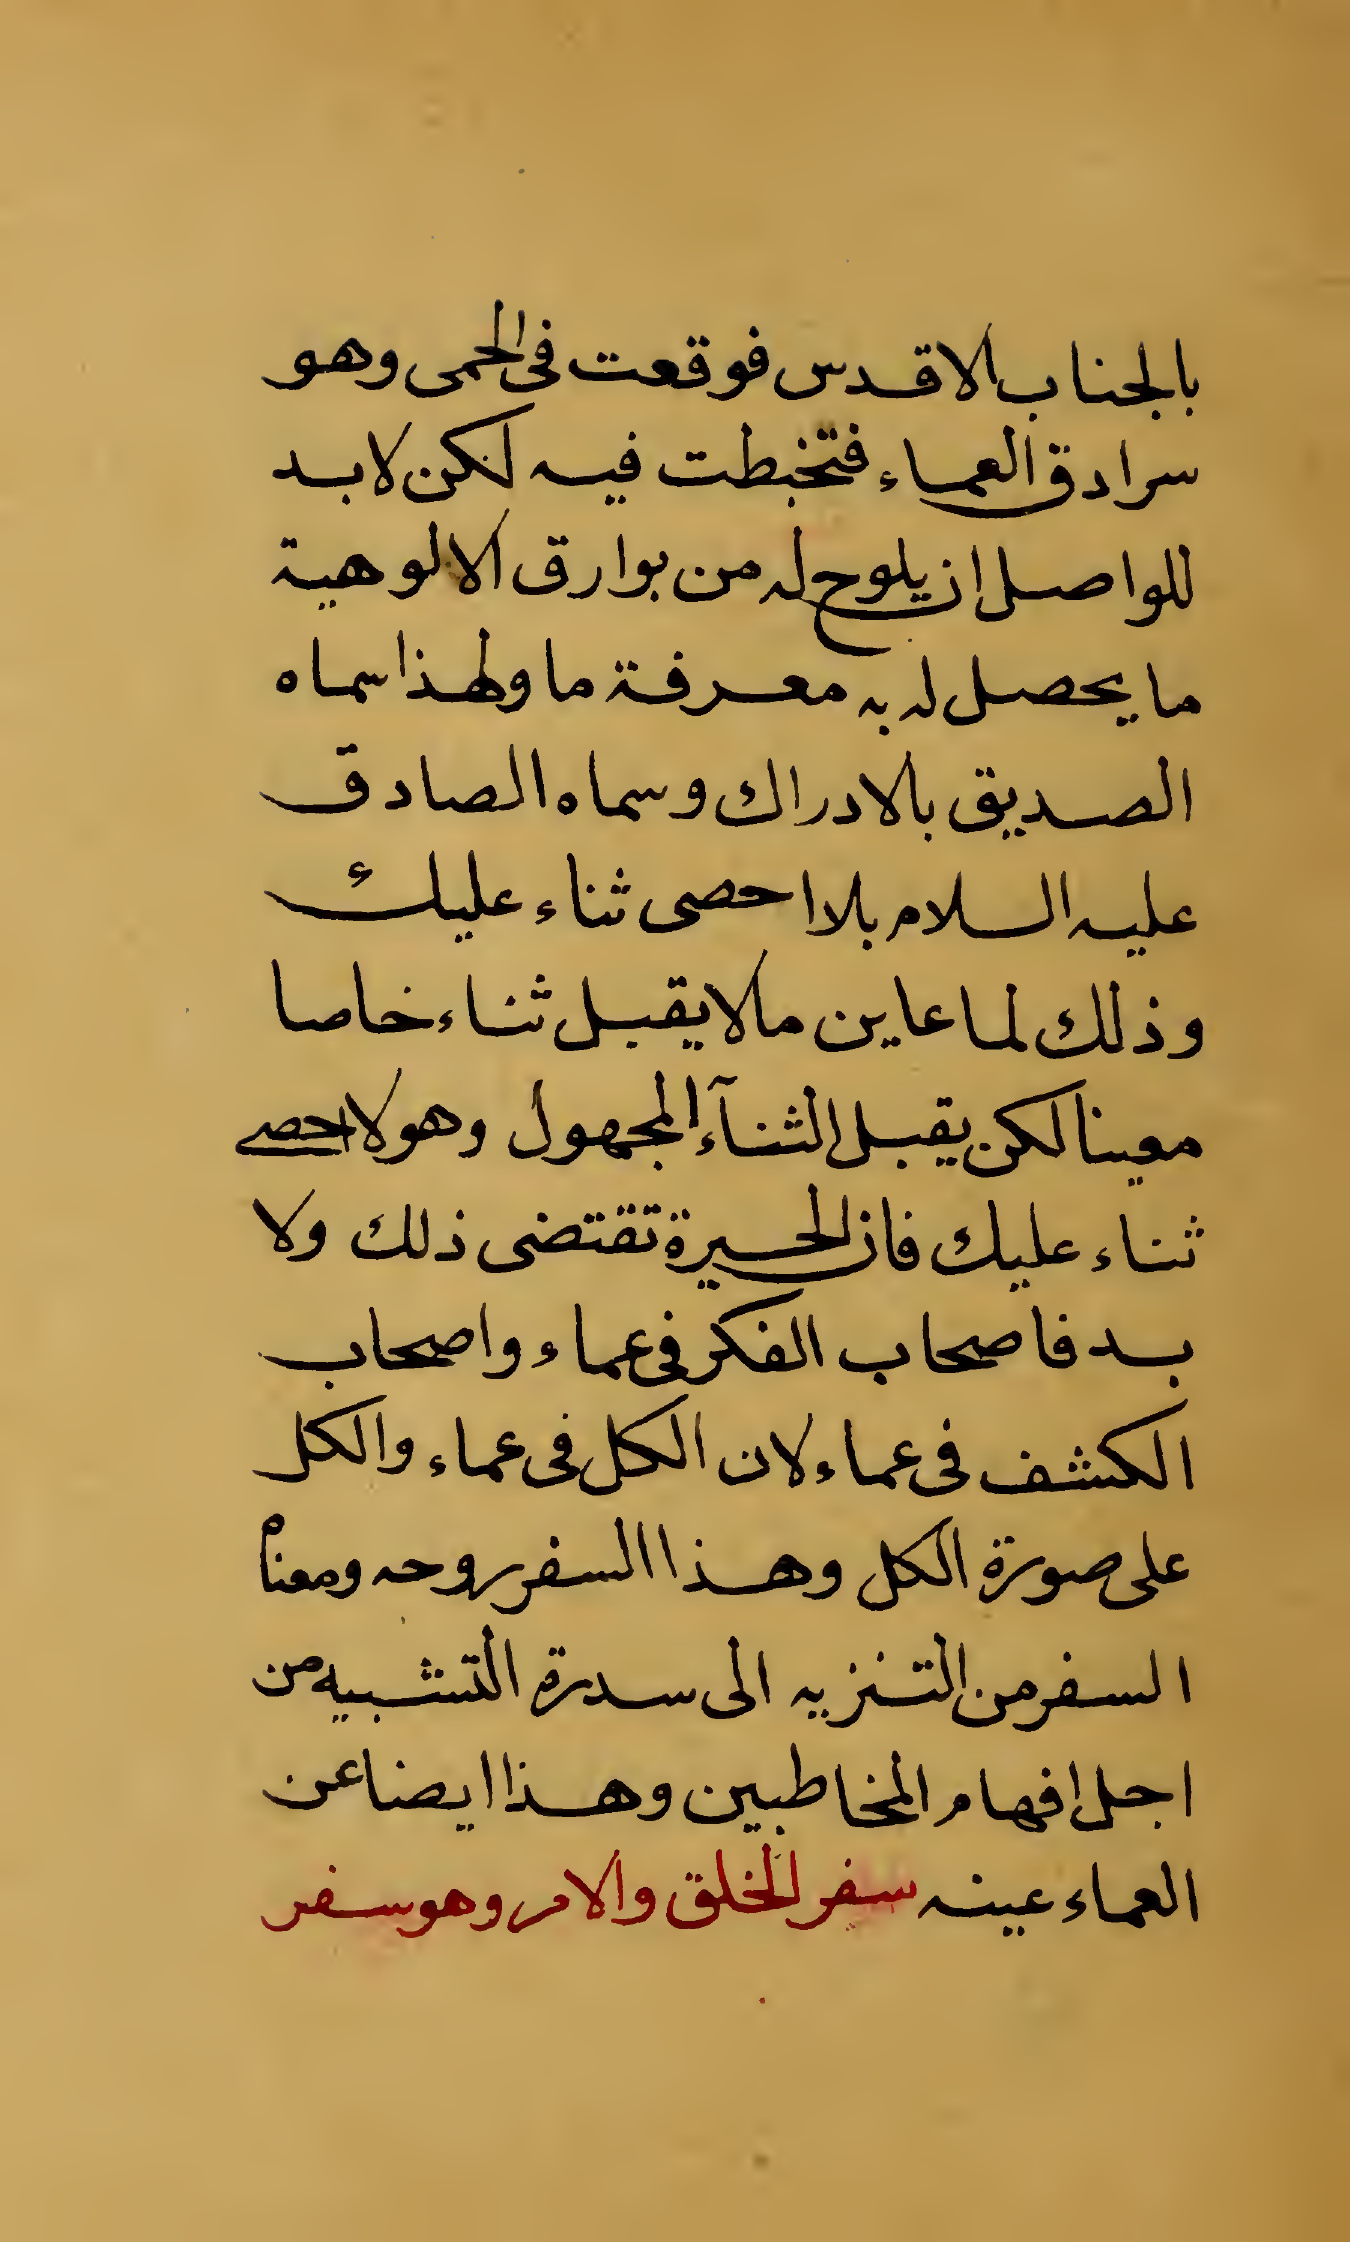 بالجناب الاقدس فوقعت في الحمى وهو
سرادق العماء فتخبطت فيه لكن لا بد
للواصل ان يلوح له من بوارق الالوهية
ما يحصل له به معرفة ما ولهذا سماه
الصديق بالادراك وسماه الصادق
عليه السلام بلا احصى ثناء عليك
وذلك لما عاين ما لا يقبل ثناء خاصا
معينا لكن يقبل الثنآء المجهول وهو لا احصى
ثناء عليك فان الحيرة تقتضى ذلك ولا
بد فاصحاب الفكر في عماء واصحاب
الكشف في عماء لان الكل في عماء والكل
على صورة الكل وهذا السفر روحه ومعناه
السفر من التنزيه الى سدرة التشبيه من
اجل افهام المخاطبين وهذا ايضا عن
العماء عينه سفر الخلق والامر وهو سفر